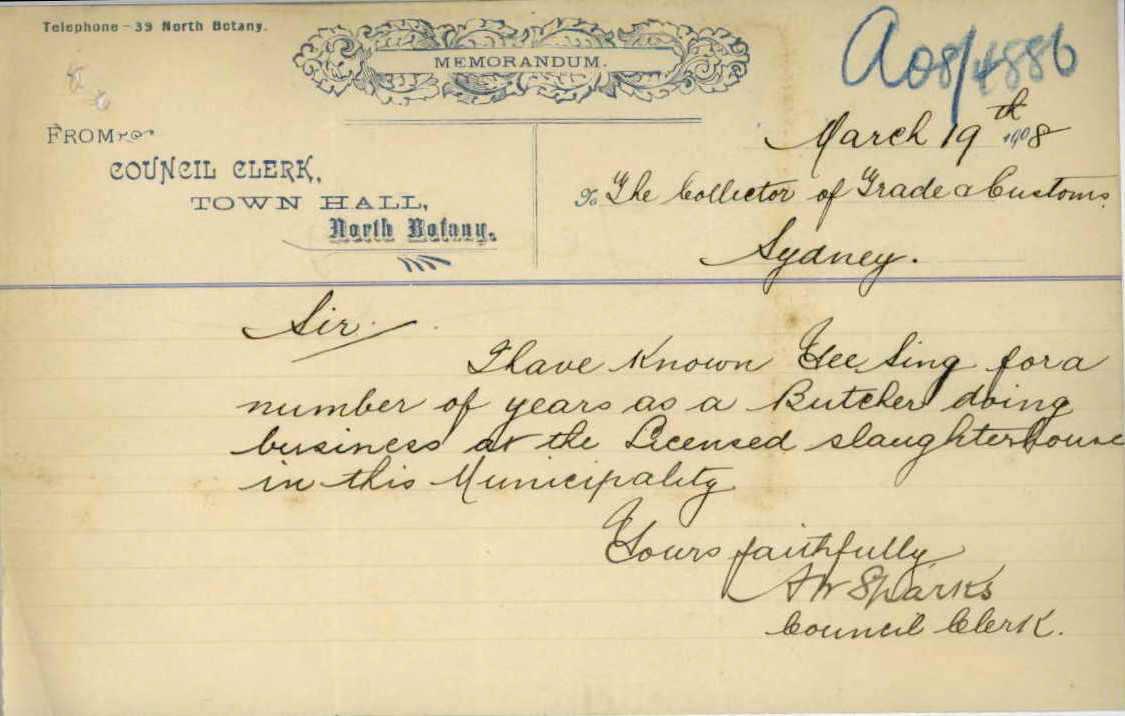 Telephone - 39 North Botany.
MEMORANDUM.
A08/4886
FROM
COUNCIL CLERK,
TOWN HALL,
North Botany.
March 19th 1908
To The Collector of Trade & Customs.
Sydney.
Sir.
I have known Yee Sing for a
number of years as a Butcher doing
business at the Licensed slaughterhouse
in this Municipality
Yours faithfully
A W Sparks
Council Clerk.